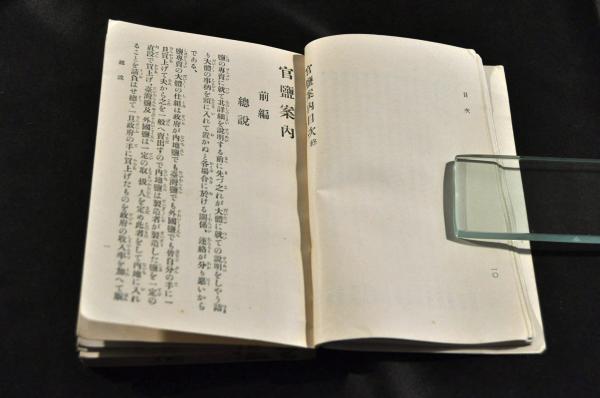 目次
官鹽案內目次終
一〇
官鹽案內
前編
總說
鹽の專賣に就て其詳細を說明する前に先づ之れが大體に就ての說明をしやう諸
も大體の事柄を頭に入れて置かぬと各場合に於ける關係、連絡が分り惡いから
である、
鹽專賣の大體の仕組は政府が內地鹽でも臺灣鹽でも外國鹽でも皆自分の手に一
旦買上げて夫から之を一般へ賣出すので內地鹽は製造者が製造した鹽を一定の
直段で買上げ、臺灣鹽及外國鹽は一定の取扱人を定め此者をして內地に入れ
ることを請負はせ總て一旦政府の手に買上げたものを政府の收入率を加へて賑
總說
一